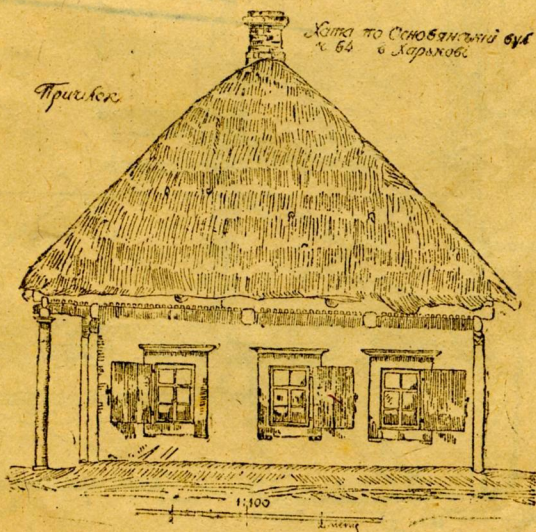 Хата по Основянській вул
ч 64 в Харькові
Причілок
1:100